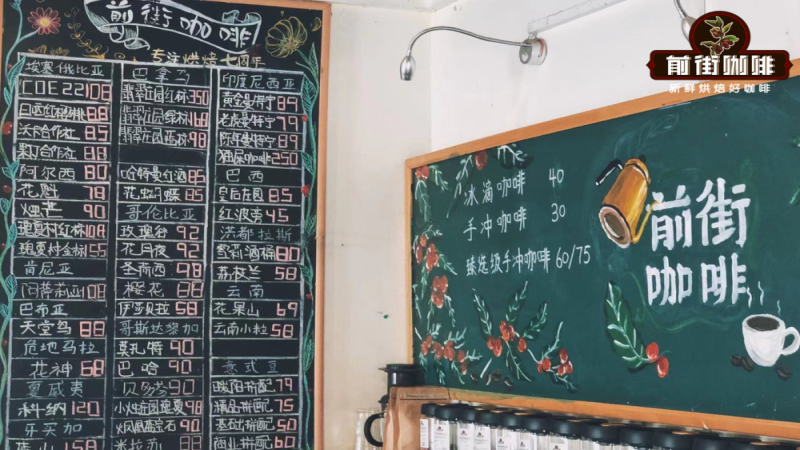 前街咖啡
专注烘焙七周年
埃塞俄比亚
COE22 108
沃卡合作社 85
阿尔西 80
花魁 78
烛芒 90
瑰夏村红标 108
瑰夏村金标 155
肯尼亚
阿萨莉亚 108
巴布亚
天堂鸟 88
危地马拉
女神 68
夏威夷
科纳 120
牙买加
蓝山 158
巴拿马
翡翠庄园红标 350
翡翠庄园绿标 168
翡翠庄园西标 98
哈特曼红酒 85
花蝴蝶 85
哥伦比亚
玫瑰谷 92
花月夜 92
圣荷西 98
樱花 88
伊莎贝拉 58
哥斯达黎加
莫扎特 90
巴哈 90
贝多芬 90
小烛庄园瑰夏 98
凤凰庄园宝石 90
米拉苏 88
印度尼西亚
黄金曼特宁 89
老虎曼特宁 79
陈年曼特宁 89
猫屎咖啡 250
巴西
皇后庄园 85
红波旁 45
洪都拉斯
雪莉酒桶 80
荔枝兰 58
云南
花果山 69
云南小粒 58
意式豆
暖阳拼配 79
精品拼配 75
基础拼配 50
商业拼配 60
冰滴咖啡 40
手冲咖啡 30
臻选级手冲咖啡 60/75
前街
咖啡
前街咖啡
新鲜烘焙好咖啡